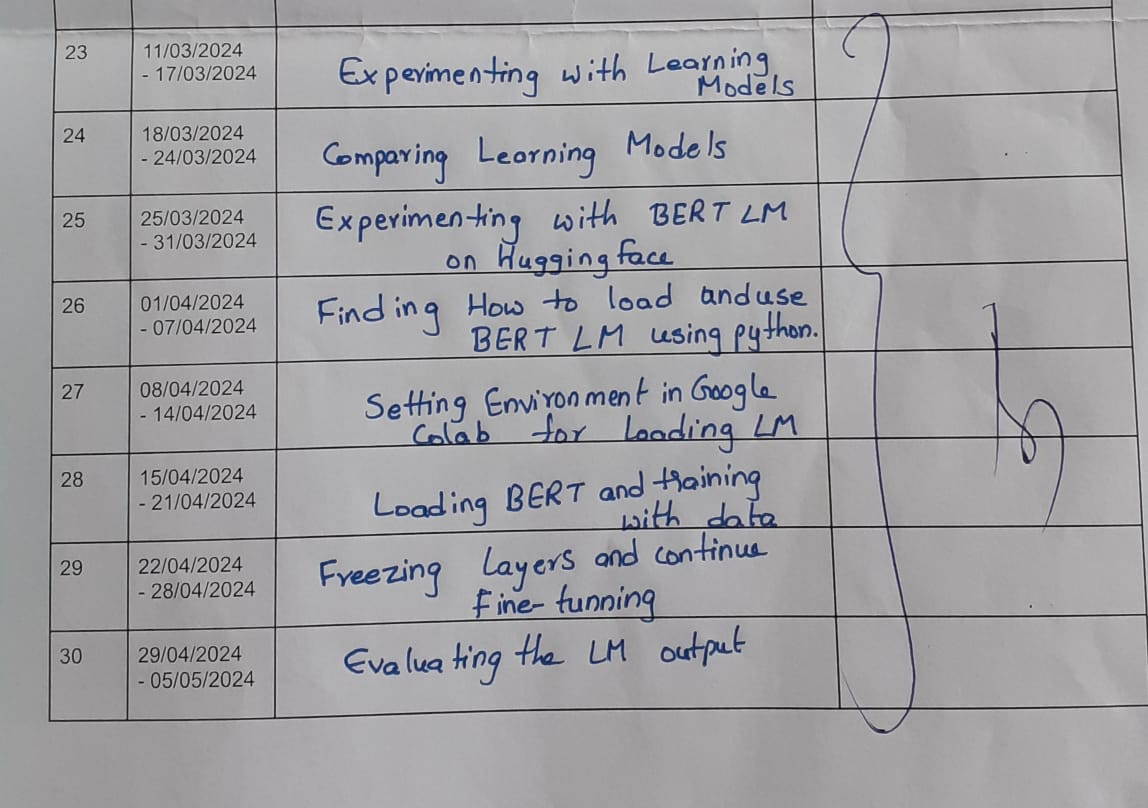 23 11/03/2024
- 17/03/2024
Experimenting with Learning
Models
24 18/03/2024
- 24/03/2024
Comparing Learning Models
25 25/03/2024
- 31/03/2024
Experimenting with BERT LM
on Hugging face
26 01/04/2024
- 07/04/2024
Finding How to load and use
BERT LM using python.
27 08/04/2024
- 14/04/2024
Setting Environment in Google
Colab for Loading LM
28 15/04/2024
- 21/04/2024
Loading BERT and training
with data
29 22/04/2024
- 28/04/2024
Freezing Layers and continue
Fine-tunning
30 29/04/2024
- 05/05/2024
Evaluating the LM output